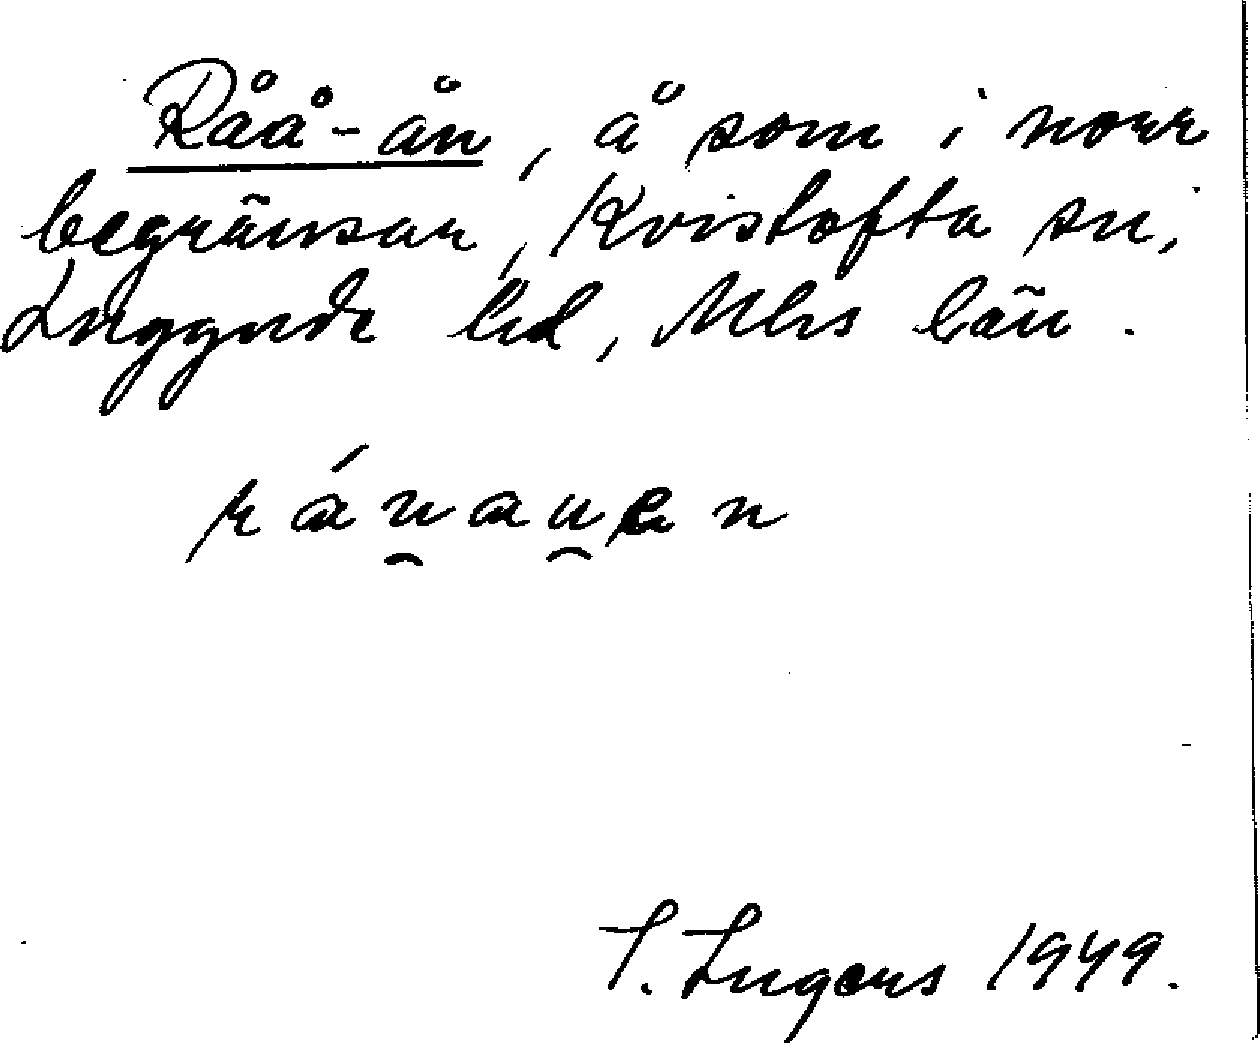 Råå-ån, å som i norr
begränsar Kvistofta sn,
Luggude hd, Mlhs län.
ráu̯au̯en
S. Ingers 1949.